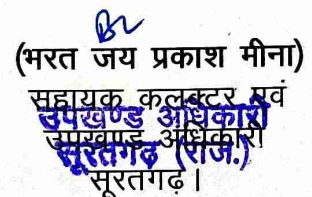 (भरत जय प्रकाश मीना)
सहायक कलक्टर एवं
उपखण्ड अधिकारी
उपखण्ड अधिकारी
सूरतगढ़ (राज.)
सूरतगढ़।